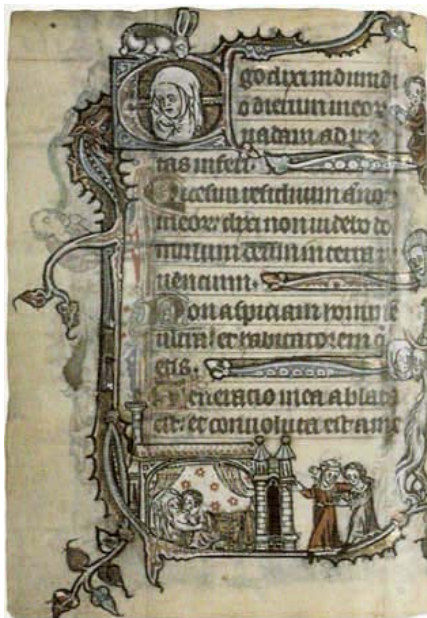 Ego dixi in dimidi
o dierum meor
uadam ad por
tas inferi
Quesiui residuum anno
meor dixi non uidebo do
minum deum in terra ui
uencium.
Non aspiciam homine
et habitatorem q
etis.
Generacio mea ablata
est et conuoluta est a me